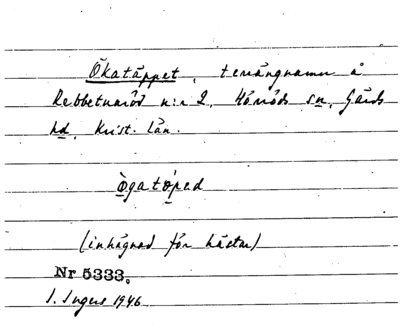 Ökatäppet, terrängnamn å
Rebbetuaröd n:r 2, Hörröds sn, Gärds
hd, Krist. län.
Ògatọ́ped
(inhägnad för hästar)
Nr 5333.
I. Ingers 1946